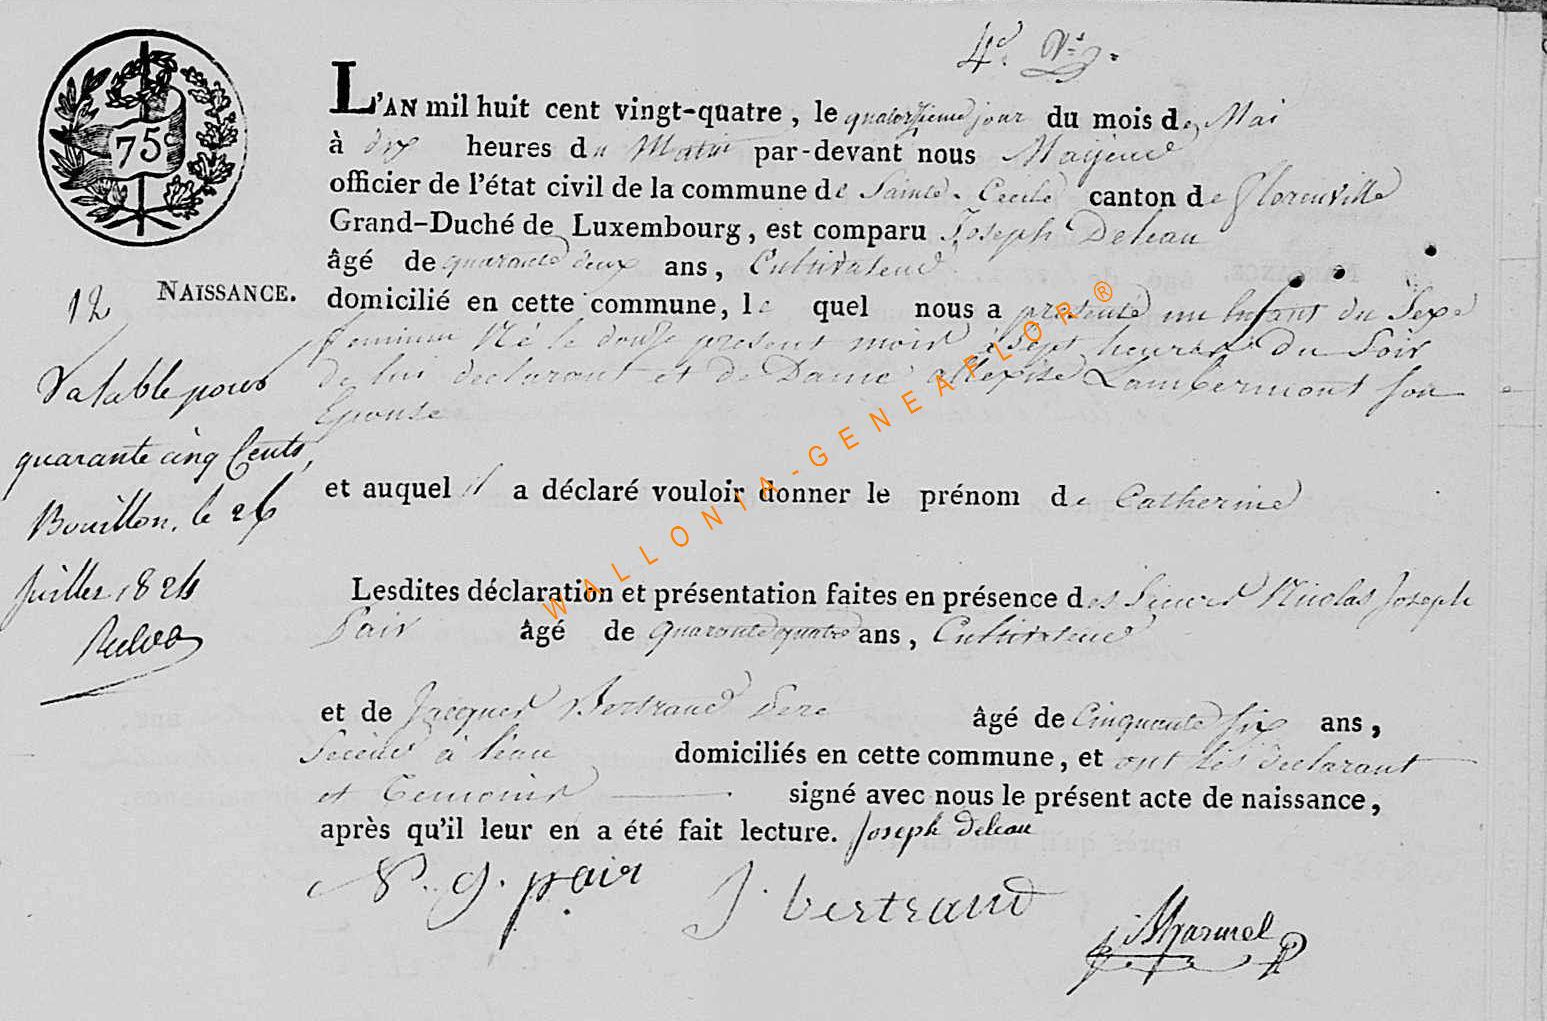 4e.
75c
L'AN mil huit cent vingt-quatre, le quatorzieme jour du mois de Mai
à dix heures du Matin par-devant nous Mayeur
officier de l'état civil de la commune de Sainte-Cecile canton de Florenville
Grand-Duché de Luxembourg, est comparu Joseph Deleau
âgé de quarante deux ans, Cultivateur
NAISSANCE.
domicilié en cette commune, lequel nous a presenté un Enfant du Sexe
feminin Né le douze present mois à sept heures du Soir
de lui declarant et de Dame Lambermont son
Epouse
et auquel il a déclaré vouloir donner le prénom de Catherine
Lesdites déclaration et présentation faites en présence des Sieurs Nicolas Joseph
Pair âgé de Quarante quatre ans, Cultivateur
et de Jacques Bertrand Pere âgé de Cinquante six ans,
domiciliés en cette commune, et ont les declarant
et Temoins signé avec nous le présent acte de naissance,
après qu'il leur en a été fait lecture. Joseph Deleau
N. J. pair J. bertrand
12
Valable pour
quarante cinq Cents,
Bouillon, le 26
Juillet 1824
WALLONIA-GENEAFLOR®